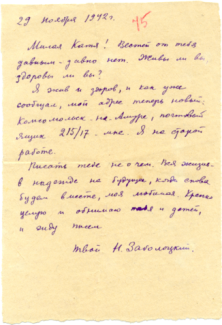 29 ноября 1942 г.
45
Милая Катя! Вестей от тебя
давным-давно нет. Живы ли вы,
здоровы ли вы?
Я жив и здоров, и как уже
сообщал, мой адрес теперь новый:
Комсомольск-на-Амуре, почтовый
ящик 215/17-мне. Я на старой
работе.
Писать тебе не о чем. Вся жизнь-
в надежде на будущее, когда снова
будем вместе, моя любимая. Крепко
целую и обнимаю тебя и детей,
и жду писем.
Твой Н. Заболоцкий.